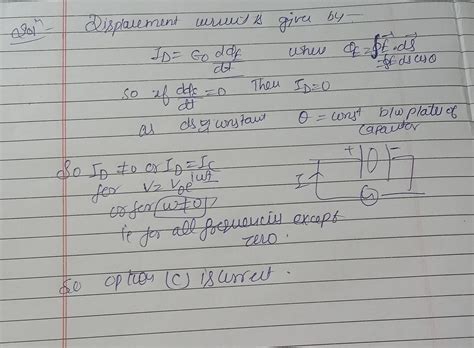 Solⁿ Displacement current is given by —
I_D = ε₀ dφ_E/dt where φ_E = ∮E⃗.dS⃗
= ∮E ds cosθ
So if dφ_E/dt = 0 Then I_D = 0
as ds = constant θ = const b/w plates of
capacitor
So I_D ≠ 0 or I_D = I_C
for V = V₀e^{iωt}
or for (ω ≠ 0)
+ -
I
ie for all frequencies except
zero.
So option (C) is correct.